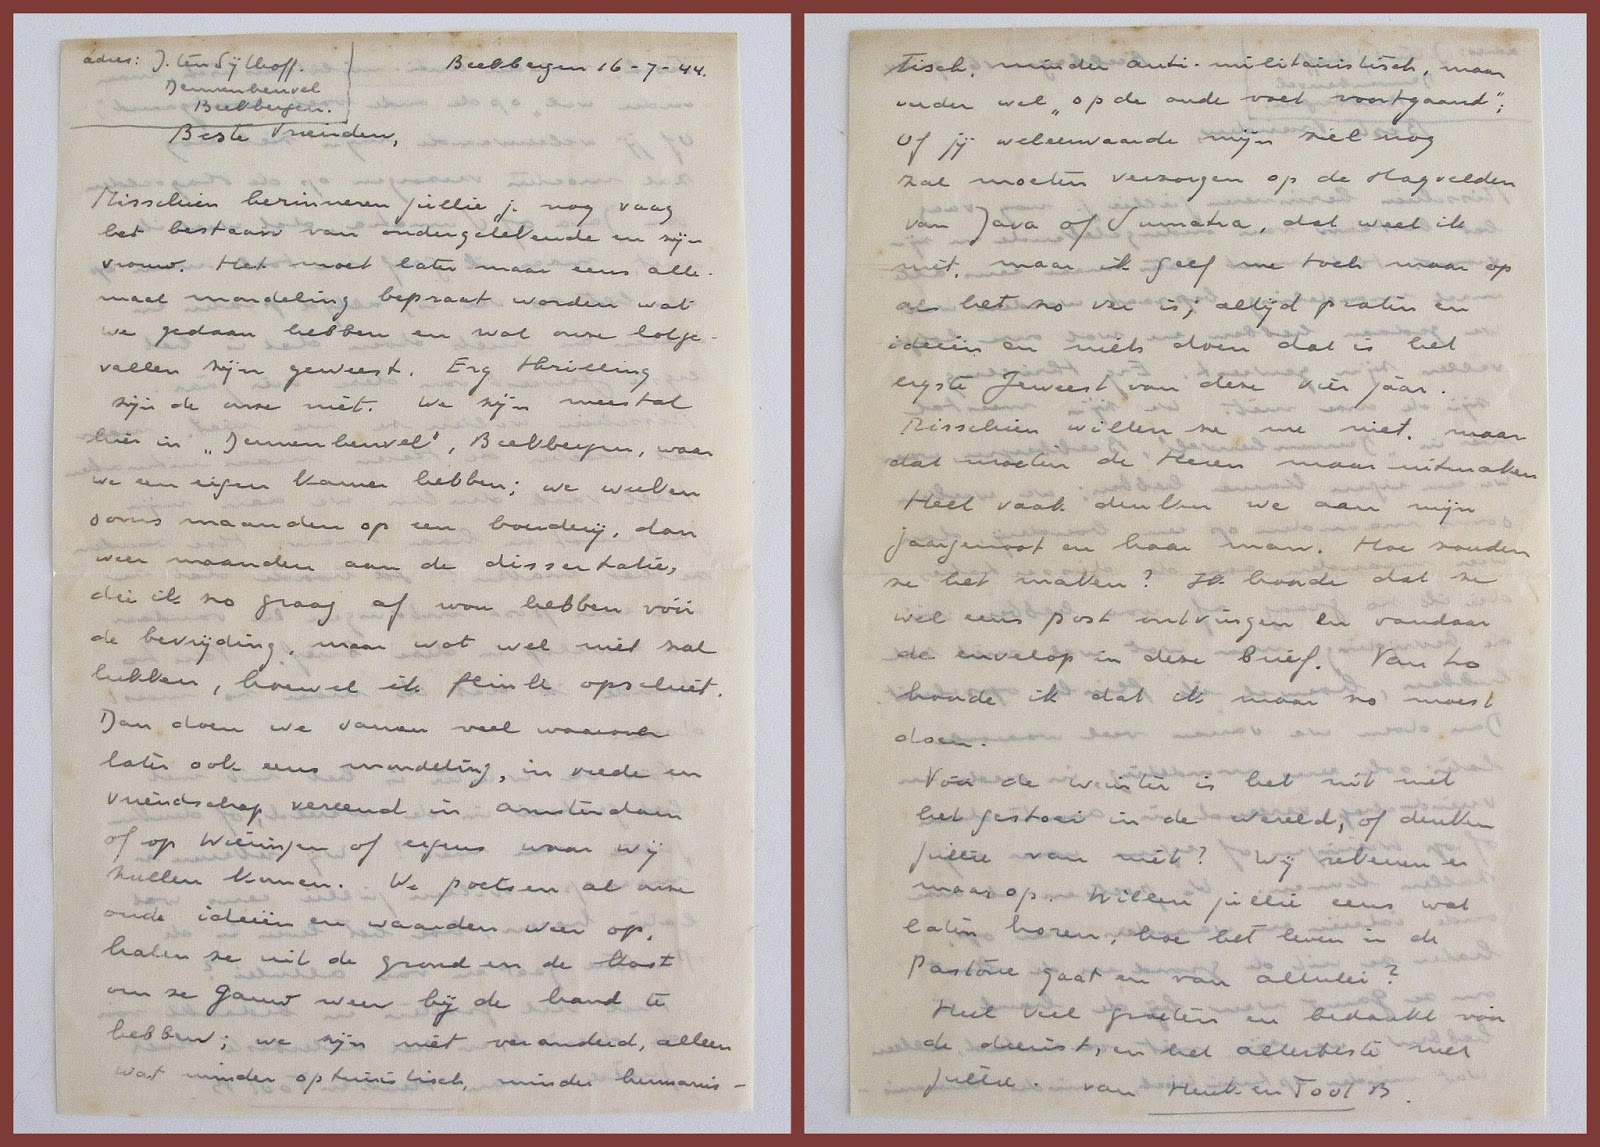 adres: J. ten Sÿthoff.
Dennenheuvel
Beekbergen.
Beekbergen 16-7-44.
Beste Vrienden,
Misschien herinneren jullie je nog vaag
het bestaan van ondergetekende en zijn
vrouw. Het moet later maar eens alle-
maal mondeling bepraat worden wat
we gedaan hebben en wat onze lotge-
vallen zijn geweest. Erg thrilling
zijn de onze niet. We zijn meestal
hier in „Dennenheuvel", Beekbergen, waar
we een eigen kamer hebben; we werken
soms maanden op een boerderij, dan
weer maanden aan de dissertatie,
die ik zo graag af wou hebben vóór
de bevrijding, maar wat wel niet zal
lukken, hoewel ik flink opschiet.
Dan doen we samen veel waarover
later ook eens mondeling, in vrede en
vriendschap vereend in Amsterdam
of op Wieringen of ergens waar wij
zullen komen. We poetsen al onze
oude ideeën en waarden weer op,
halen ze uit de grond en de kast
om ze gauw weer bij de hand te
hebben; we zijn niet veranderd, alleen
wat minder optimistisch, minder humanis-
tisch, minder anti-militairistisch, maar
verder wel „op de oude voet voortgaand";
Of jij weleerwaarde mijn ziel nog
zal moeten verzorgen op de slagvelden
van Java of Sumatra, dat weet ik
niet, maar ik geef me toch maar op
als het zo ver is; altijd praten en
ideeën en niets doen dat is het
ergste geweest van deze vier jaar.
Misschien willen ze me niet, maar
dat moeten de Heren maar uitmaken
Heel vaak denken we aan mijn
jaargenoot en haar man. Hoe zouden
ze het maken? Ik hoorde dat ze
wel eens post ontvingen en vandaar
de envelop in deze brief. Van Lo
hoorde ik dat ik maar zo moest
doen.
Vóór de winter is het uit met
het gestoei in de wereld, of denken
jullie van niet? Wij rekenen er
maar op. Willen jullie eens wat
laten horen, hoe het leven in de
pastorie gaat en van allerlei?
Heel veel groeten en bedankt voor
de dienst, en het allerbeste met
jullie. van Henk en Tool B.